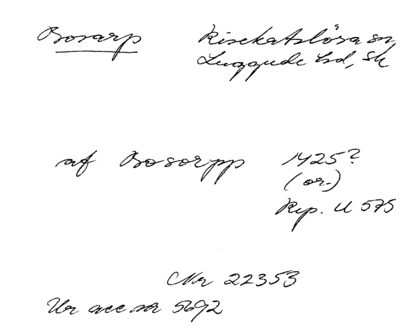 Bosarp Risekatslösa sn
Luggude hd, Sk
af Bosorpp 1425?
(or.)
Rep. II 575
Nr 22353
Ur acc nr 5692